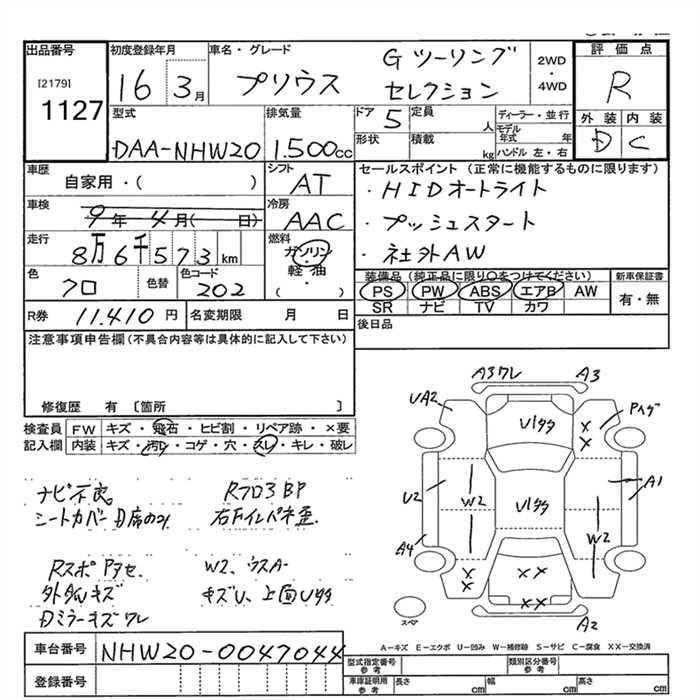 出品番号
[2179]
1127
初度登録年月
16 3月
車名・グレード
プリウス
Gツーリング
セレクション
2WD
・
4WD
評価点
R
外装 内装
D C
型式
DAA-NHW20
排気量
1.500cc
ドア
5
定員
人
形状
積載
kg
ディーラー・並行
モデル年式 年
ハンドル 左・右
車歴
自家用・( )
シフト
AT
車検
9年4月( 日)
冷房
AAC
走行
8万6千573km
燃料
ガソリン
・
軽油
( ・ )
色
クロ
色替
色コード
202
R券
11.410円
名変期限 月 日
セールスポイント(正常に機能するものに限ります)
・HIDオートライト
・プッシュスタート
・社外AW
装備品(純正品に限り○をつけてください)
PS PW ABS エアB AW
SR ナビ TV カワ
新車保証書
有・無
後日品
注意事項申告欄(不具合内容等は具体的に記入して下さい)
修復歴 有〔箇所 〕
検査員記入欄
FW キズ・飛石・ヒビ割・リペア跡・×要
内装 キズ・汚レ・コゲ・穴・スレ・キレ・破レ
ナビ不良
シートカバー D席のみ
Rフロ3BP
右Fインパネ歪
Rスポアセ、
外タルキズ
Dミラーキズワレ
W2、ウスA-
キズU、上面Uタタ
A3ワレ A3
UA2
Uタタ
Pハゲ
××
U2
W2
Uタタ
W2
A1
A4
××
××
××
A2
スペア
A-キズ E-エクボ U-凹み W-補修跡 S-サビ C-腐食 XX-交換済
車台番号
NHW20-0047044
登録番号
型式指定番号
参考
類別区分番号
参考
車庫証明用
参考
長さ cm 幅 cm 高さ cm